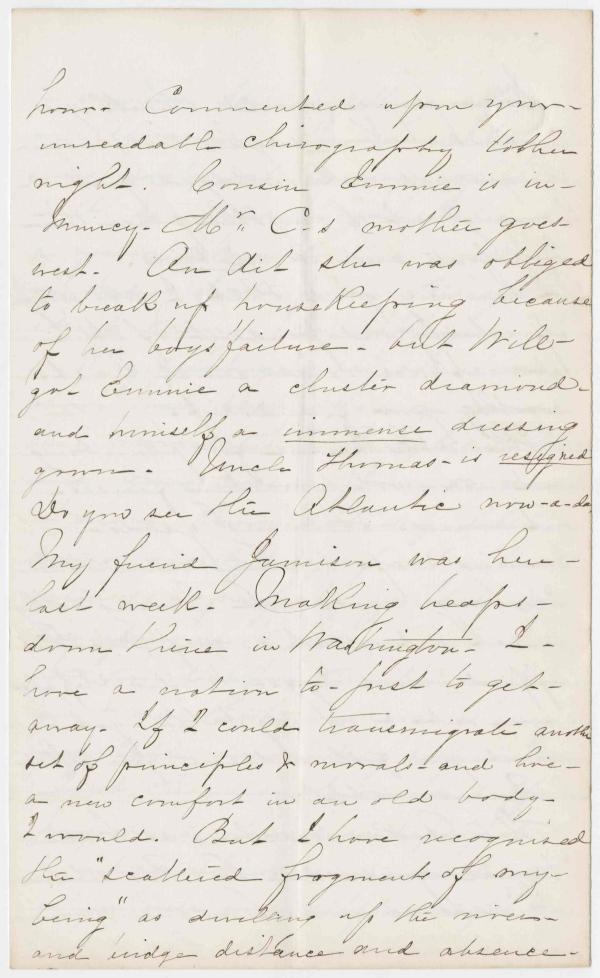 hour- Commented upon your-
unreadable chirography tother
night. Cousin Emmie is in-
Muncy- Mr. C-s mother goes-
west. On dit she was obliged
to break up housekeeping because
of her boys' failure- but Will-
got Emmie a cluster diamond-
and himself a immense dressing
gown- Uncle Thomas- is resigned
Do you see the Atlantic now-a-da
My friend Jamison was here-
last week- Making heaps-
down there in Washington- I-
have a notion to- just to get-
away- If I could transmigrate another
set of principles & morals- and live-
a new comfort in an old body-
I would. But I have recognised
the "scattered fragments of my-
being" as dwelling up the river-
and bridge distance and absence-